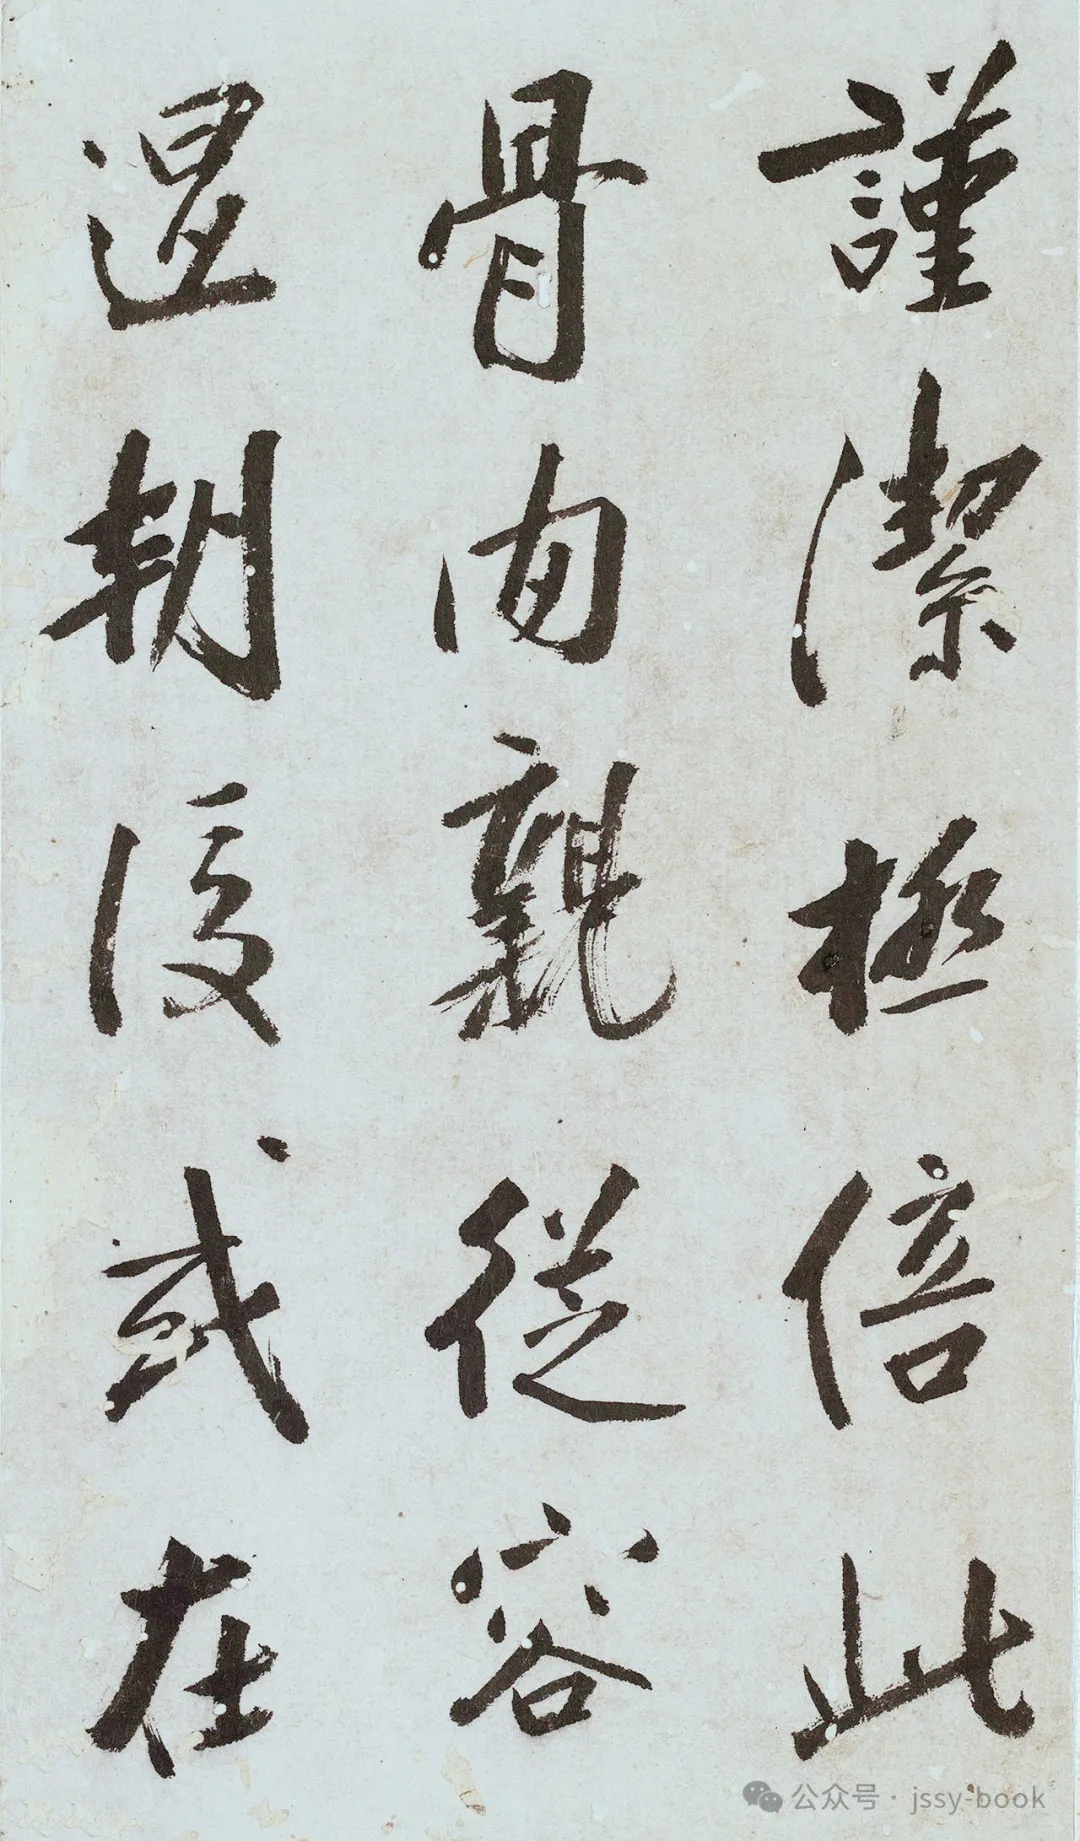 謹潔極倍此
骨肉親從容
退朝後或在
公众号 · jssy-book